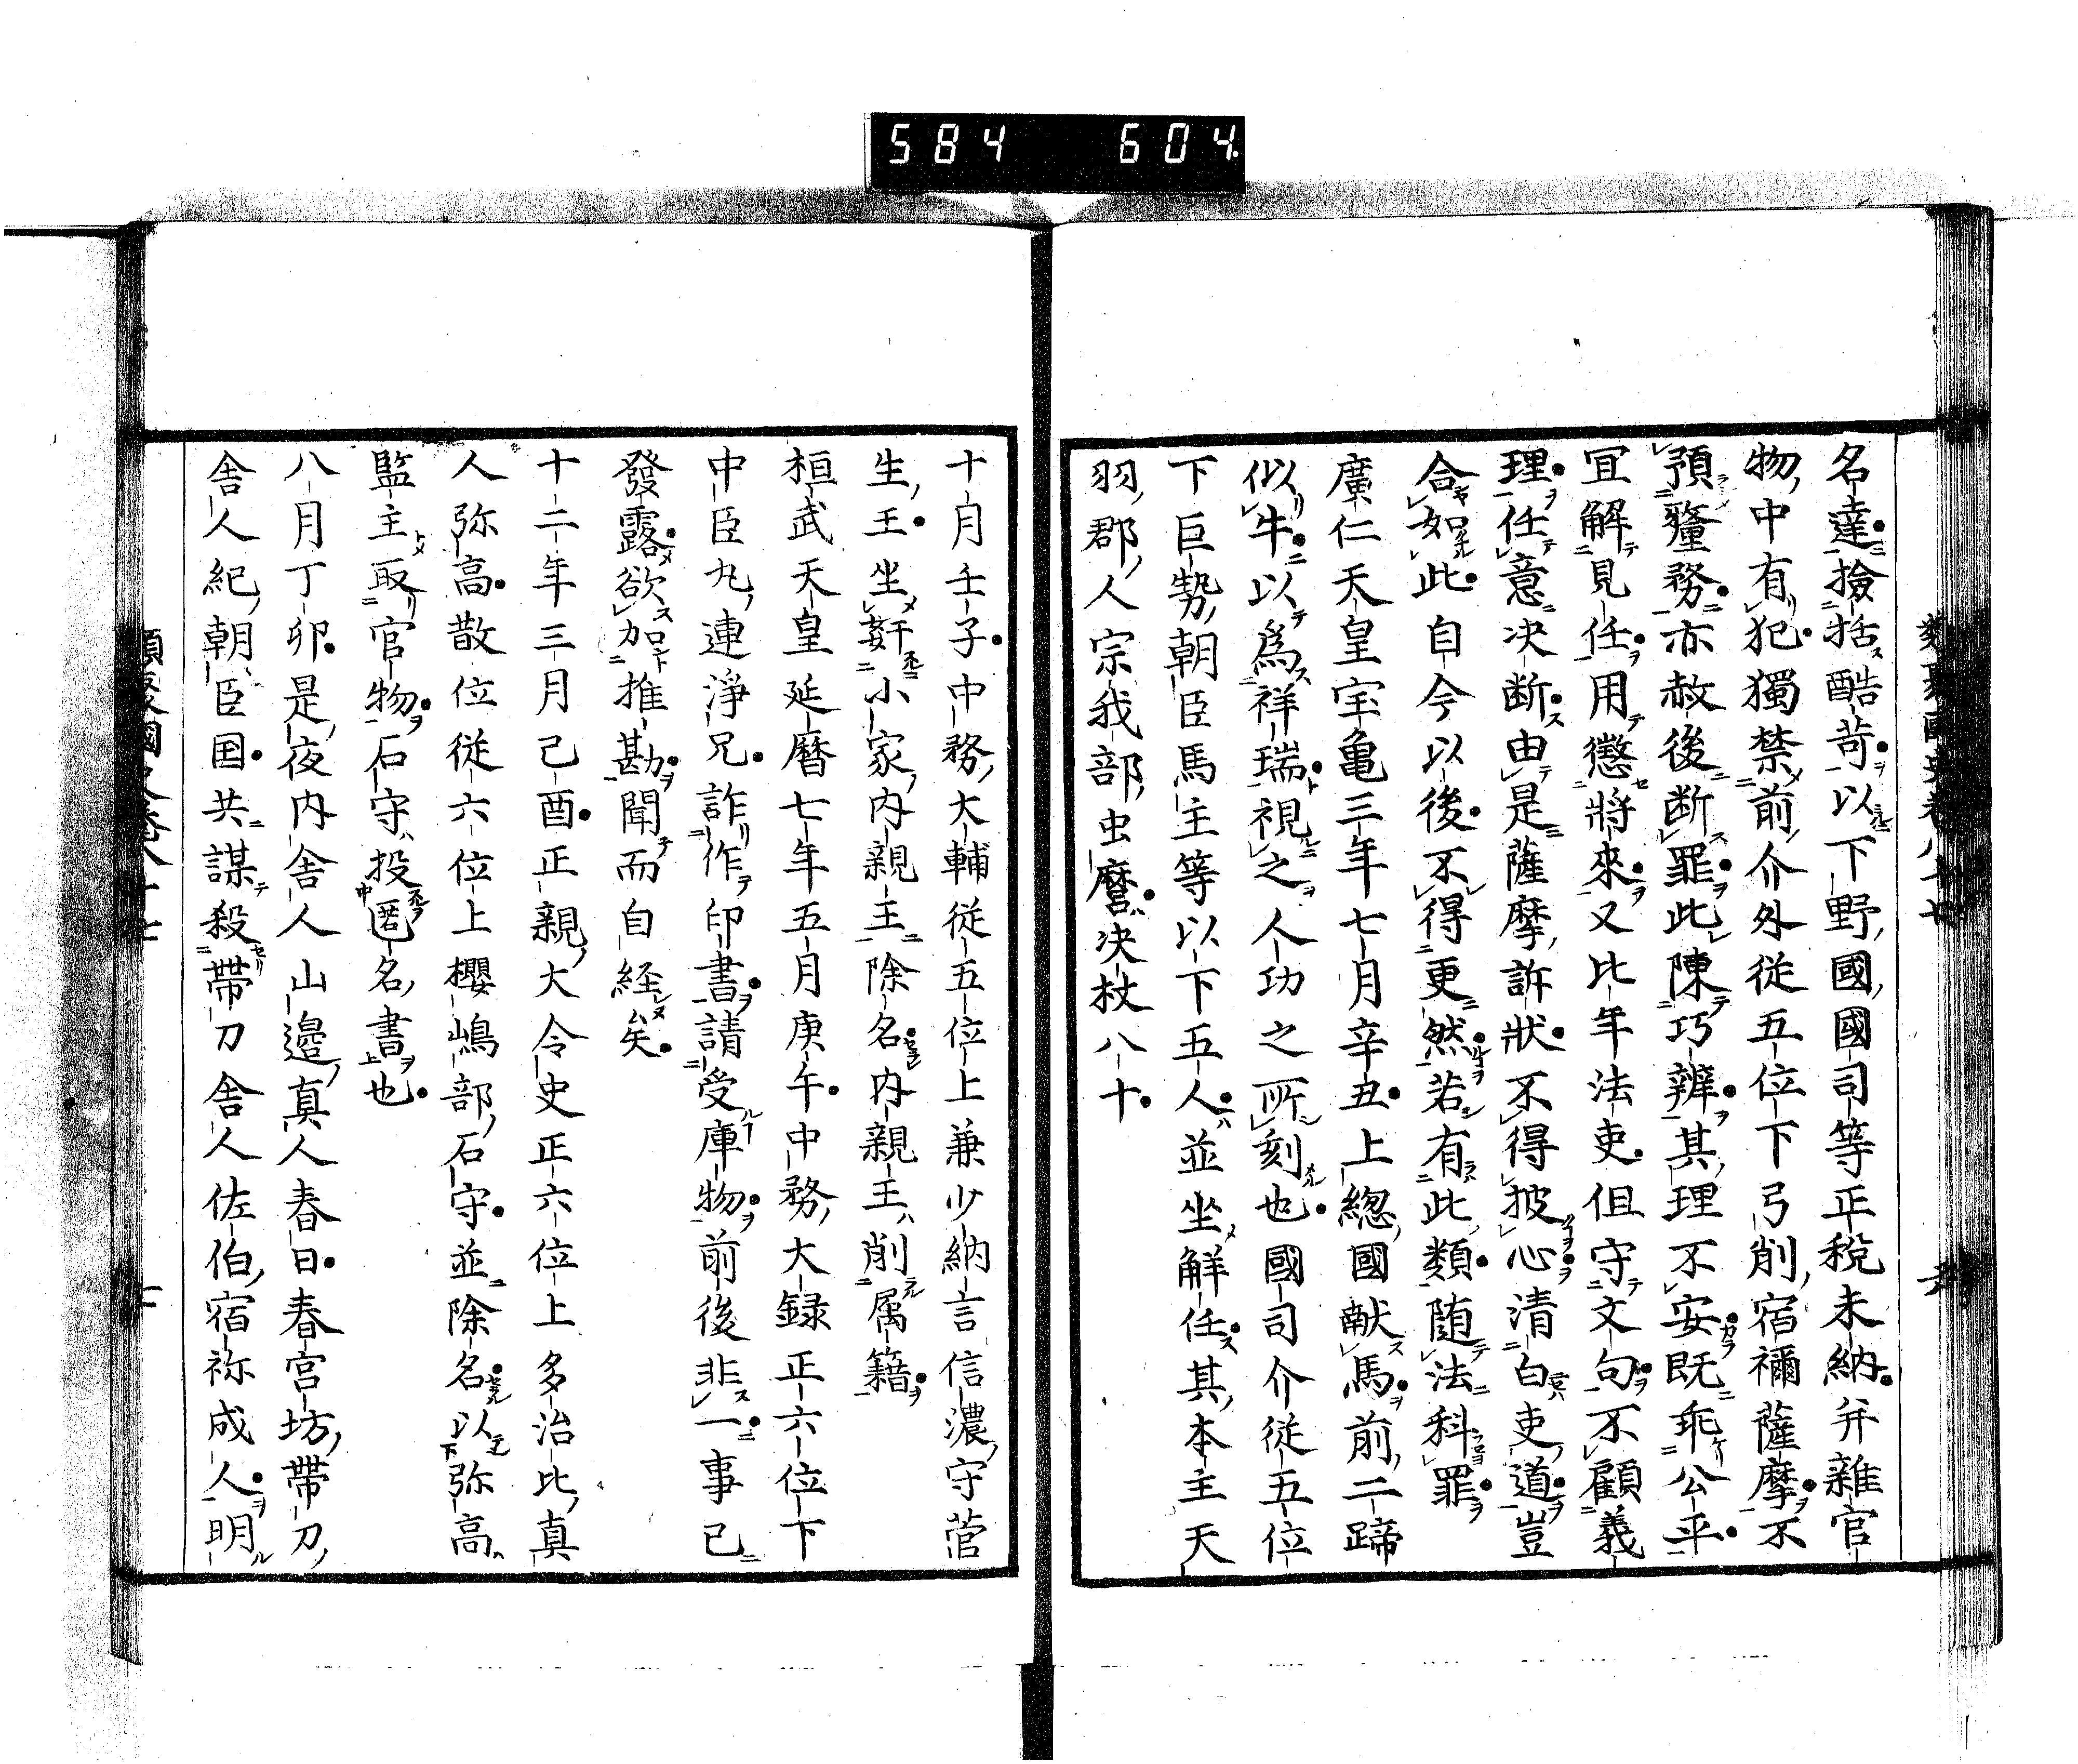 584 604
名達撿括酷苛以下野國國司等正税未納并雜官
物中有犯獨禁前介外從五位下弓削宿禰薩摩不
預釐務亦赦後断罪此陳巧辨其理不安既乖公平
冝解見任用懲將來又比年法吏但守文句不顧義
理任意决断由是薩摩訴狀不得披心清白吏道豈
合如此自今以後不得更然若有此類随法科罪
廣仁天皇宝亀三年七月辛丑上緫國献馬前二蹄
似牛以爲祥瑞視之人功之所刻也國司介從五位
下巨勢朝臣馬主等以下五人並坐解任其本主天
羽郡人宗我部虫麿决杖八十
十月壬子中務大輔從五位上兼少納言信濃守菅
生王坐姧小家内親王除名内親王削属籍
桓武天皇延暦七年五月庚午中務大録正六位下
中臣丸連淨兄詐作印書請受庫物前後非一事已
發露欲加推勘聞而自経矣
十二年三月己酉正親大令史正六位上多治比真
人弥高散位從六位上櫻嶋部石守並除名以弥高
監主取官物石守投匿名書也
八月丁卯是夜内舎人山邉真人春日春宮坊帶刀
舎人紀朝臣国共謀殺帶刀舎人佐伯宿祢成人明